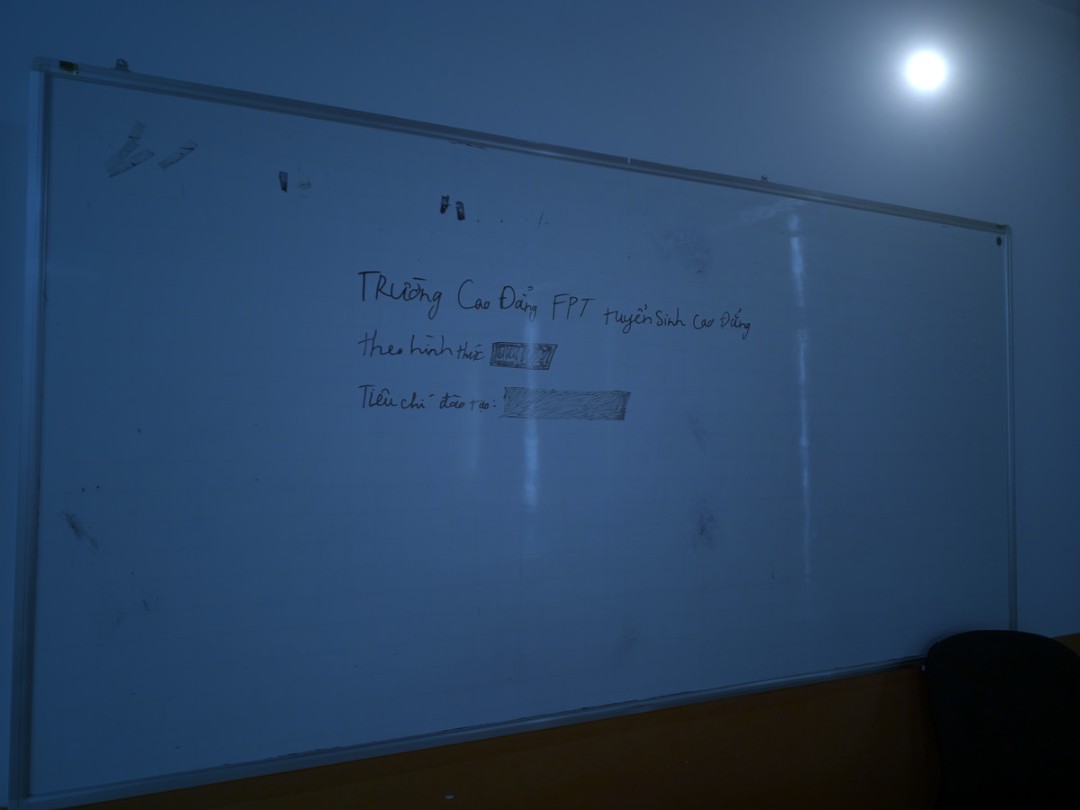 Trường Cao Đẳng FPT tuyển sinh cao Đẳng
theo hình thức
Tiêu chí đào tạo: